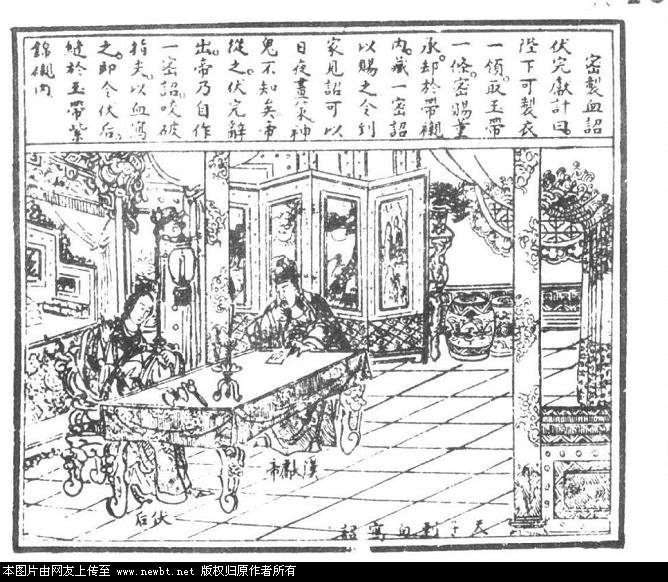 密製血詔
伏完獻計曰。
陛下可製衣
一領。取玉帶
一條。密賜董
承。却於帶襯
內。藏一密詔
以賜之。令到
家見詔。可以
日夜畫策。神
鬼不知矣。帝
從之。伏完辭
出。帝乃自作
一密詔。咬破
指尖。以血寫
之。即令伏后。
縫於玉帶紫
錦襯內
漢獻帝
伏后
天子刺血寫詔
本图片由网友上传至 www.newbt.net 版权归原作者所有